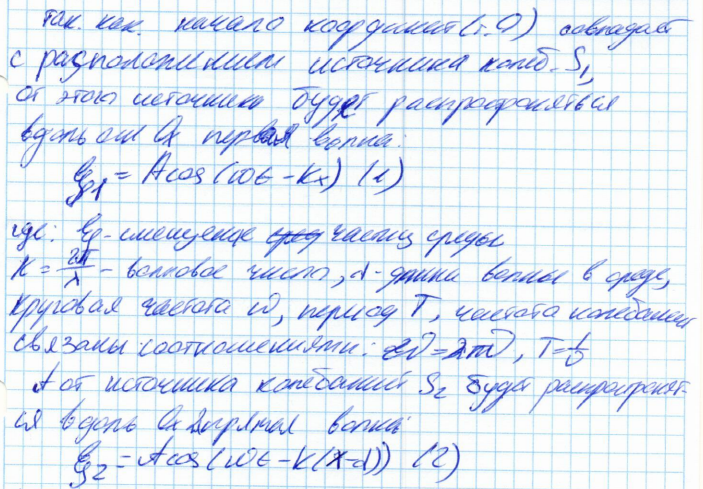 Так. как. начало координат (т.О) совпадает
с расположением источника колеб. S₁,
от этого источника будет распространяться
вдоль оси Ox первая волна:
ξ₁ = A cos(ωt - kx) (1)
где: ξ - смещение сред частиц среды
K = 2π/λ - волновое число, λ - длина волны в среде,
круговая частота ω, период T, частота колебаний
связаны соотношениями: ω = 2πν, T = 1/ν
А от источника колебаний S₂ будет распространят-
ся вдоль Ox прямая волна:
ξ₂ = A cos(ωt - k(x-d)) (2)